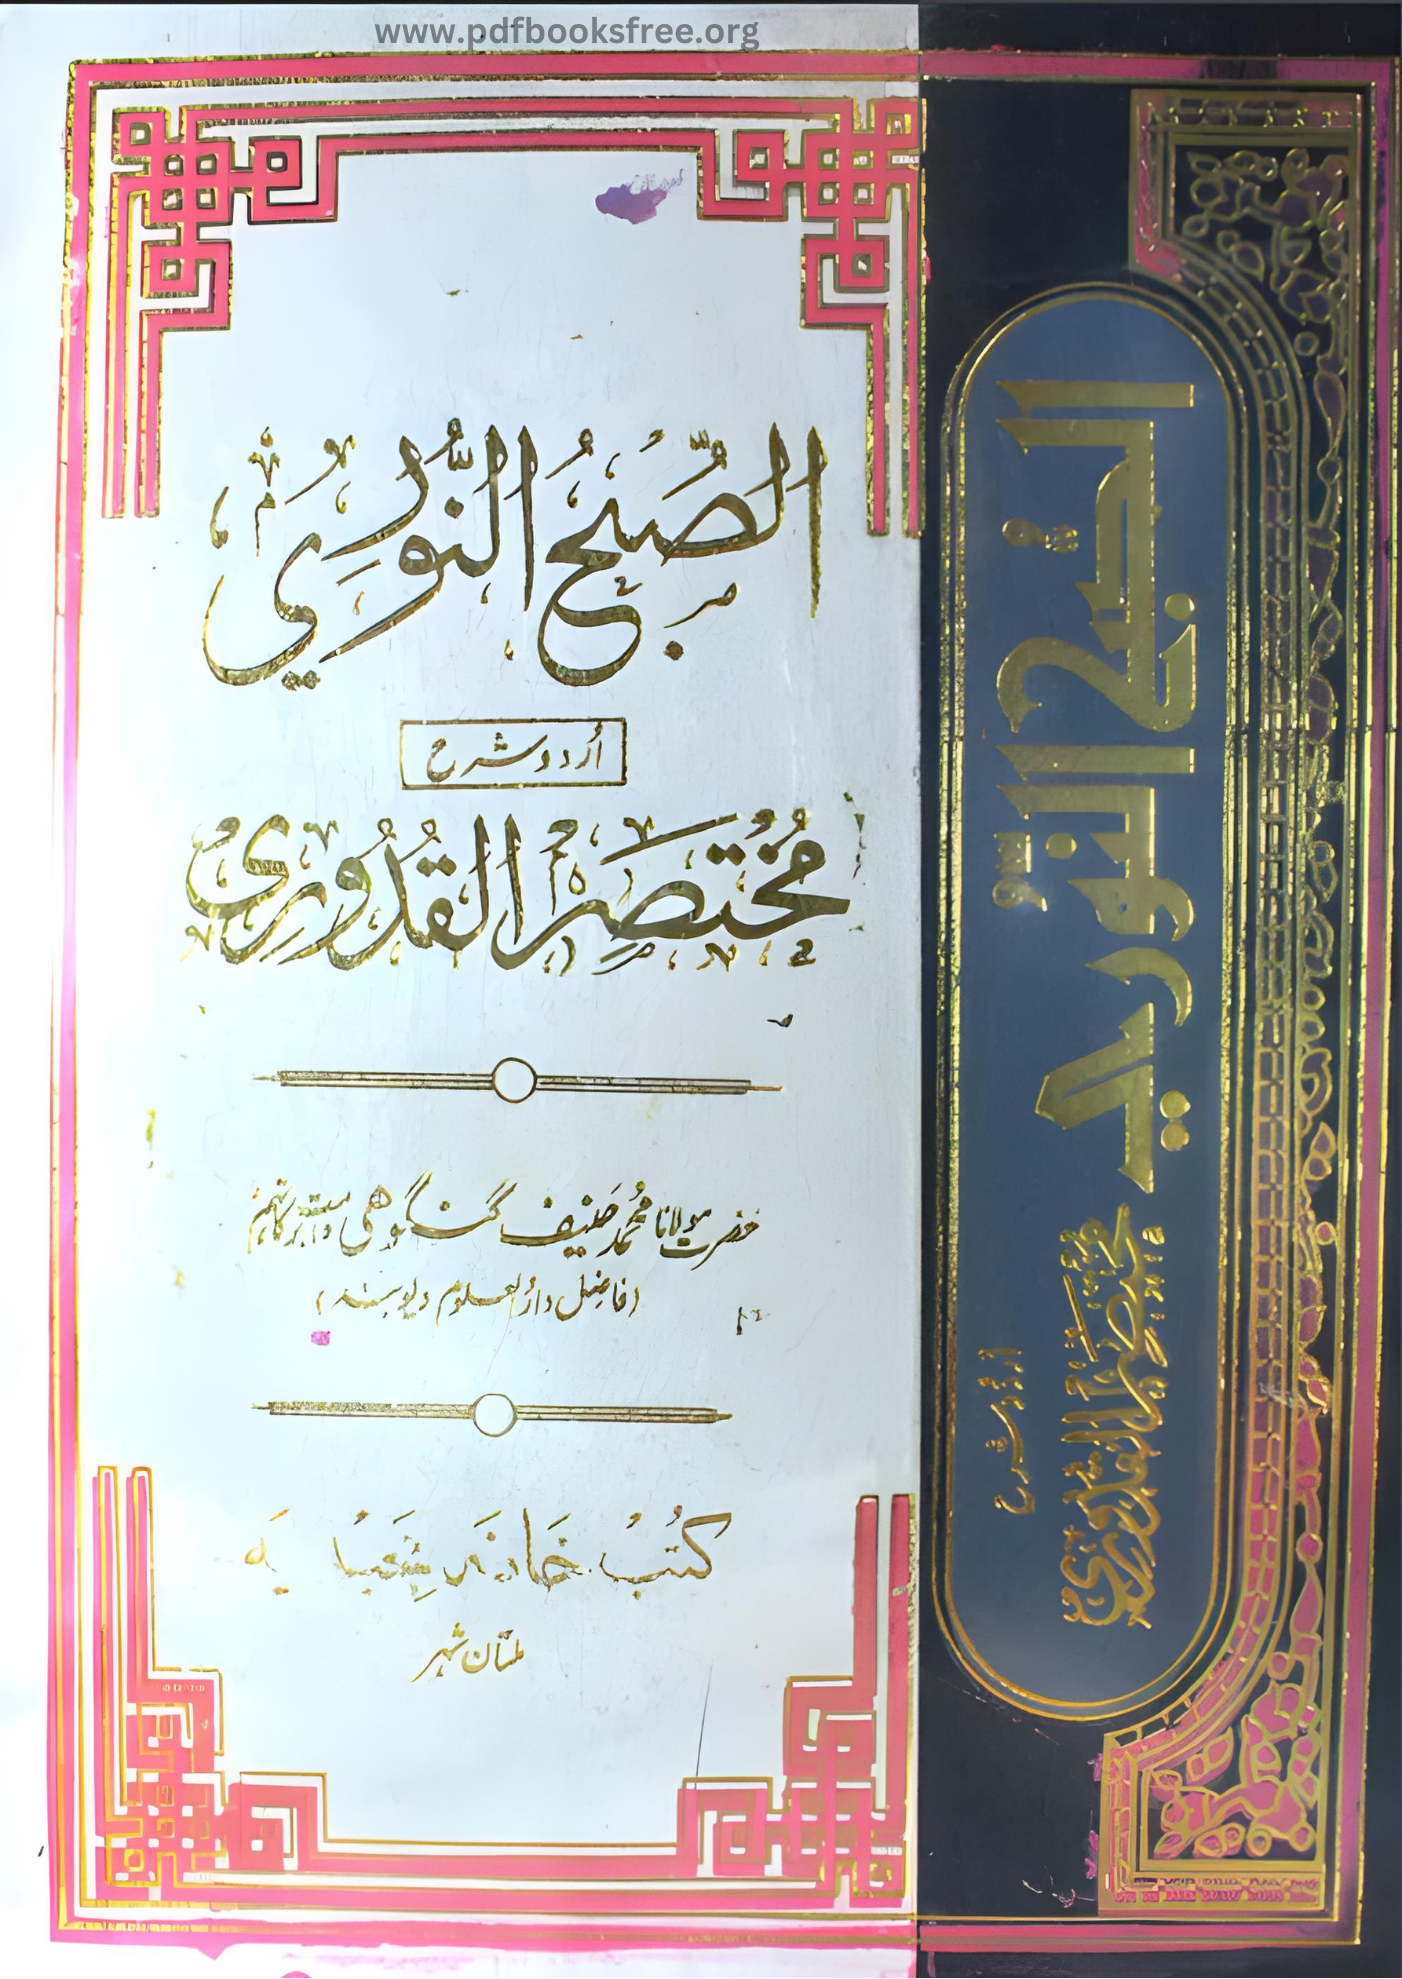 www.pdfbooksfree.org
الصُّبْحُ النُّورِيّ
اُردو شرح
مُختَصَرُ القُدُورِی
حضرت مولانا محمد حنیف گنگوهی دامت برکاتہم
(فاضِل دارُالعلوم دیوبند)
کُتُب خَانَہ
ملتان شہر
الصُّبح النّوری
اردو شرح
مختصر القدوری